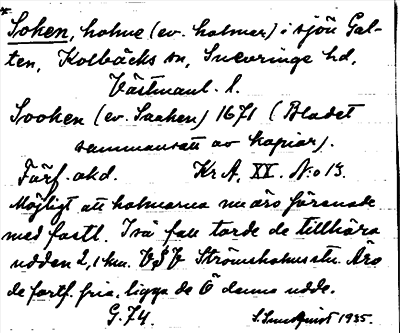 Soken, holme (ev. holmar) i sjön Gal-
ten, Kolbäcks sn, Snevringe hd,
Västmanl. l.
Sooken (ev. Saaken) 1671 (Bladet
sammansatt av kopior).
Färf. akd. Kr A, XX. No 13.
Möjligt att holmarna nu äro förenade
med fastl. I så fall torde de tillhöra
udden 2,1 km. VSV Strömsholms stn. Äro
de fortf. fria, ligga de Ö denna udde.
G. 74. S. 1935.